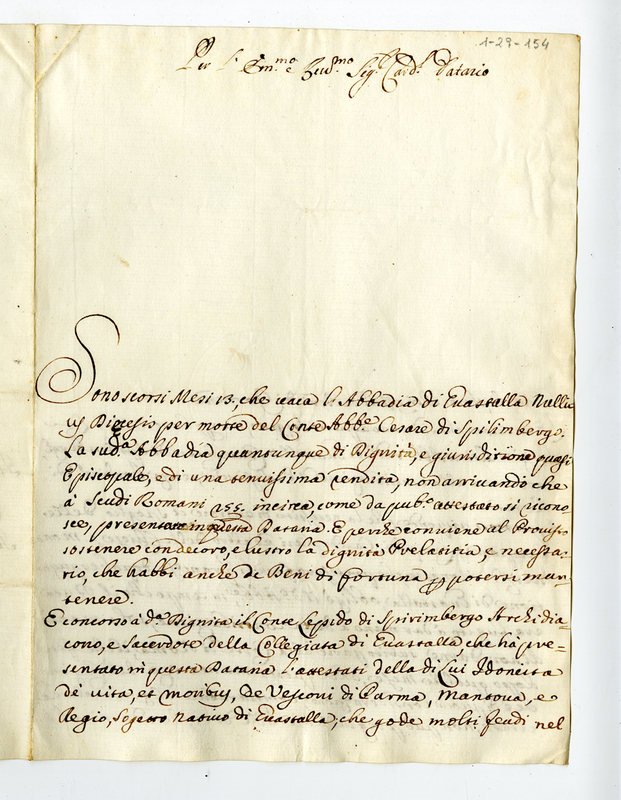 1-29-154
Per l' Em.mo e Reu.mo Sig.r Card.l Datario
Sono scorsi Mesi 13, che uaca l'Abbadia di Guastalla Nulli-
us Diocesis per morte del Conte Abb.e Cesare di Spilimbergo.
La sud.a Abbadia quantunque di Dignità, e giurisdizione quasi
Episcopale, e di una tenuissima rendita, non arriuando che
à Scudi Romani 155. incirca, come da pub.o attestato si ricono-
sce, presentato in questa Dataria. E perche conuiene al Prouisto
sostenere con decoro, e lustro la dignità Prelatitia, e necessa-
rio, che habbi anche de Beni di fortuna per potersi man-
tenere.
E concorso à d.a Dignità il Conte Lepido di Spirimbergo Archidia-
cono, e Sacerdote della Collegiata di Guastalla, che hà pre-
sentato in questa Dataria l'attestati della di Lui Idoneità
de uita, et moribus, de Vescoui di Parma, Mantoua, e
Regio, Sogetto natiuo di Guastalla, che gode molti feudi nel